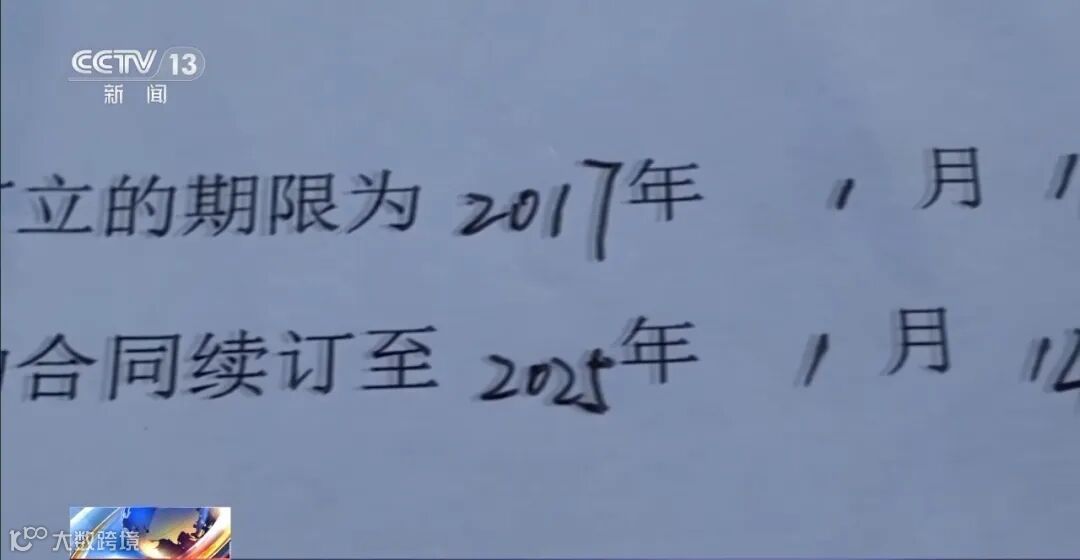 CCTV 13
新闻
立的期限为 2017年 1月 1
合同续订至 2025年 1月 1
大数跨境